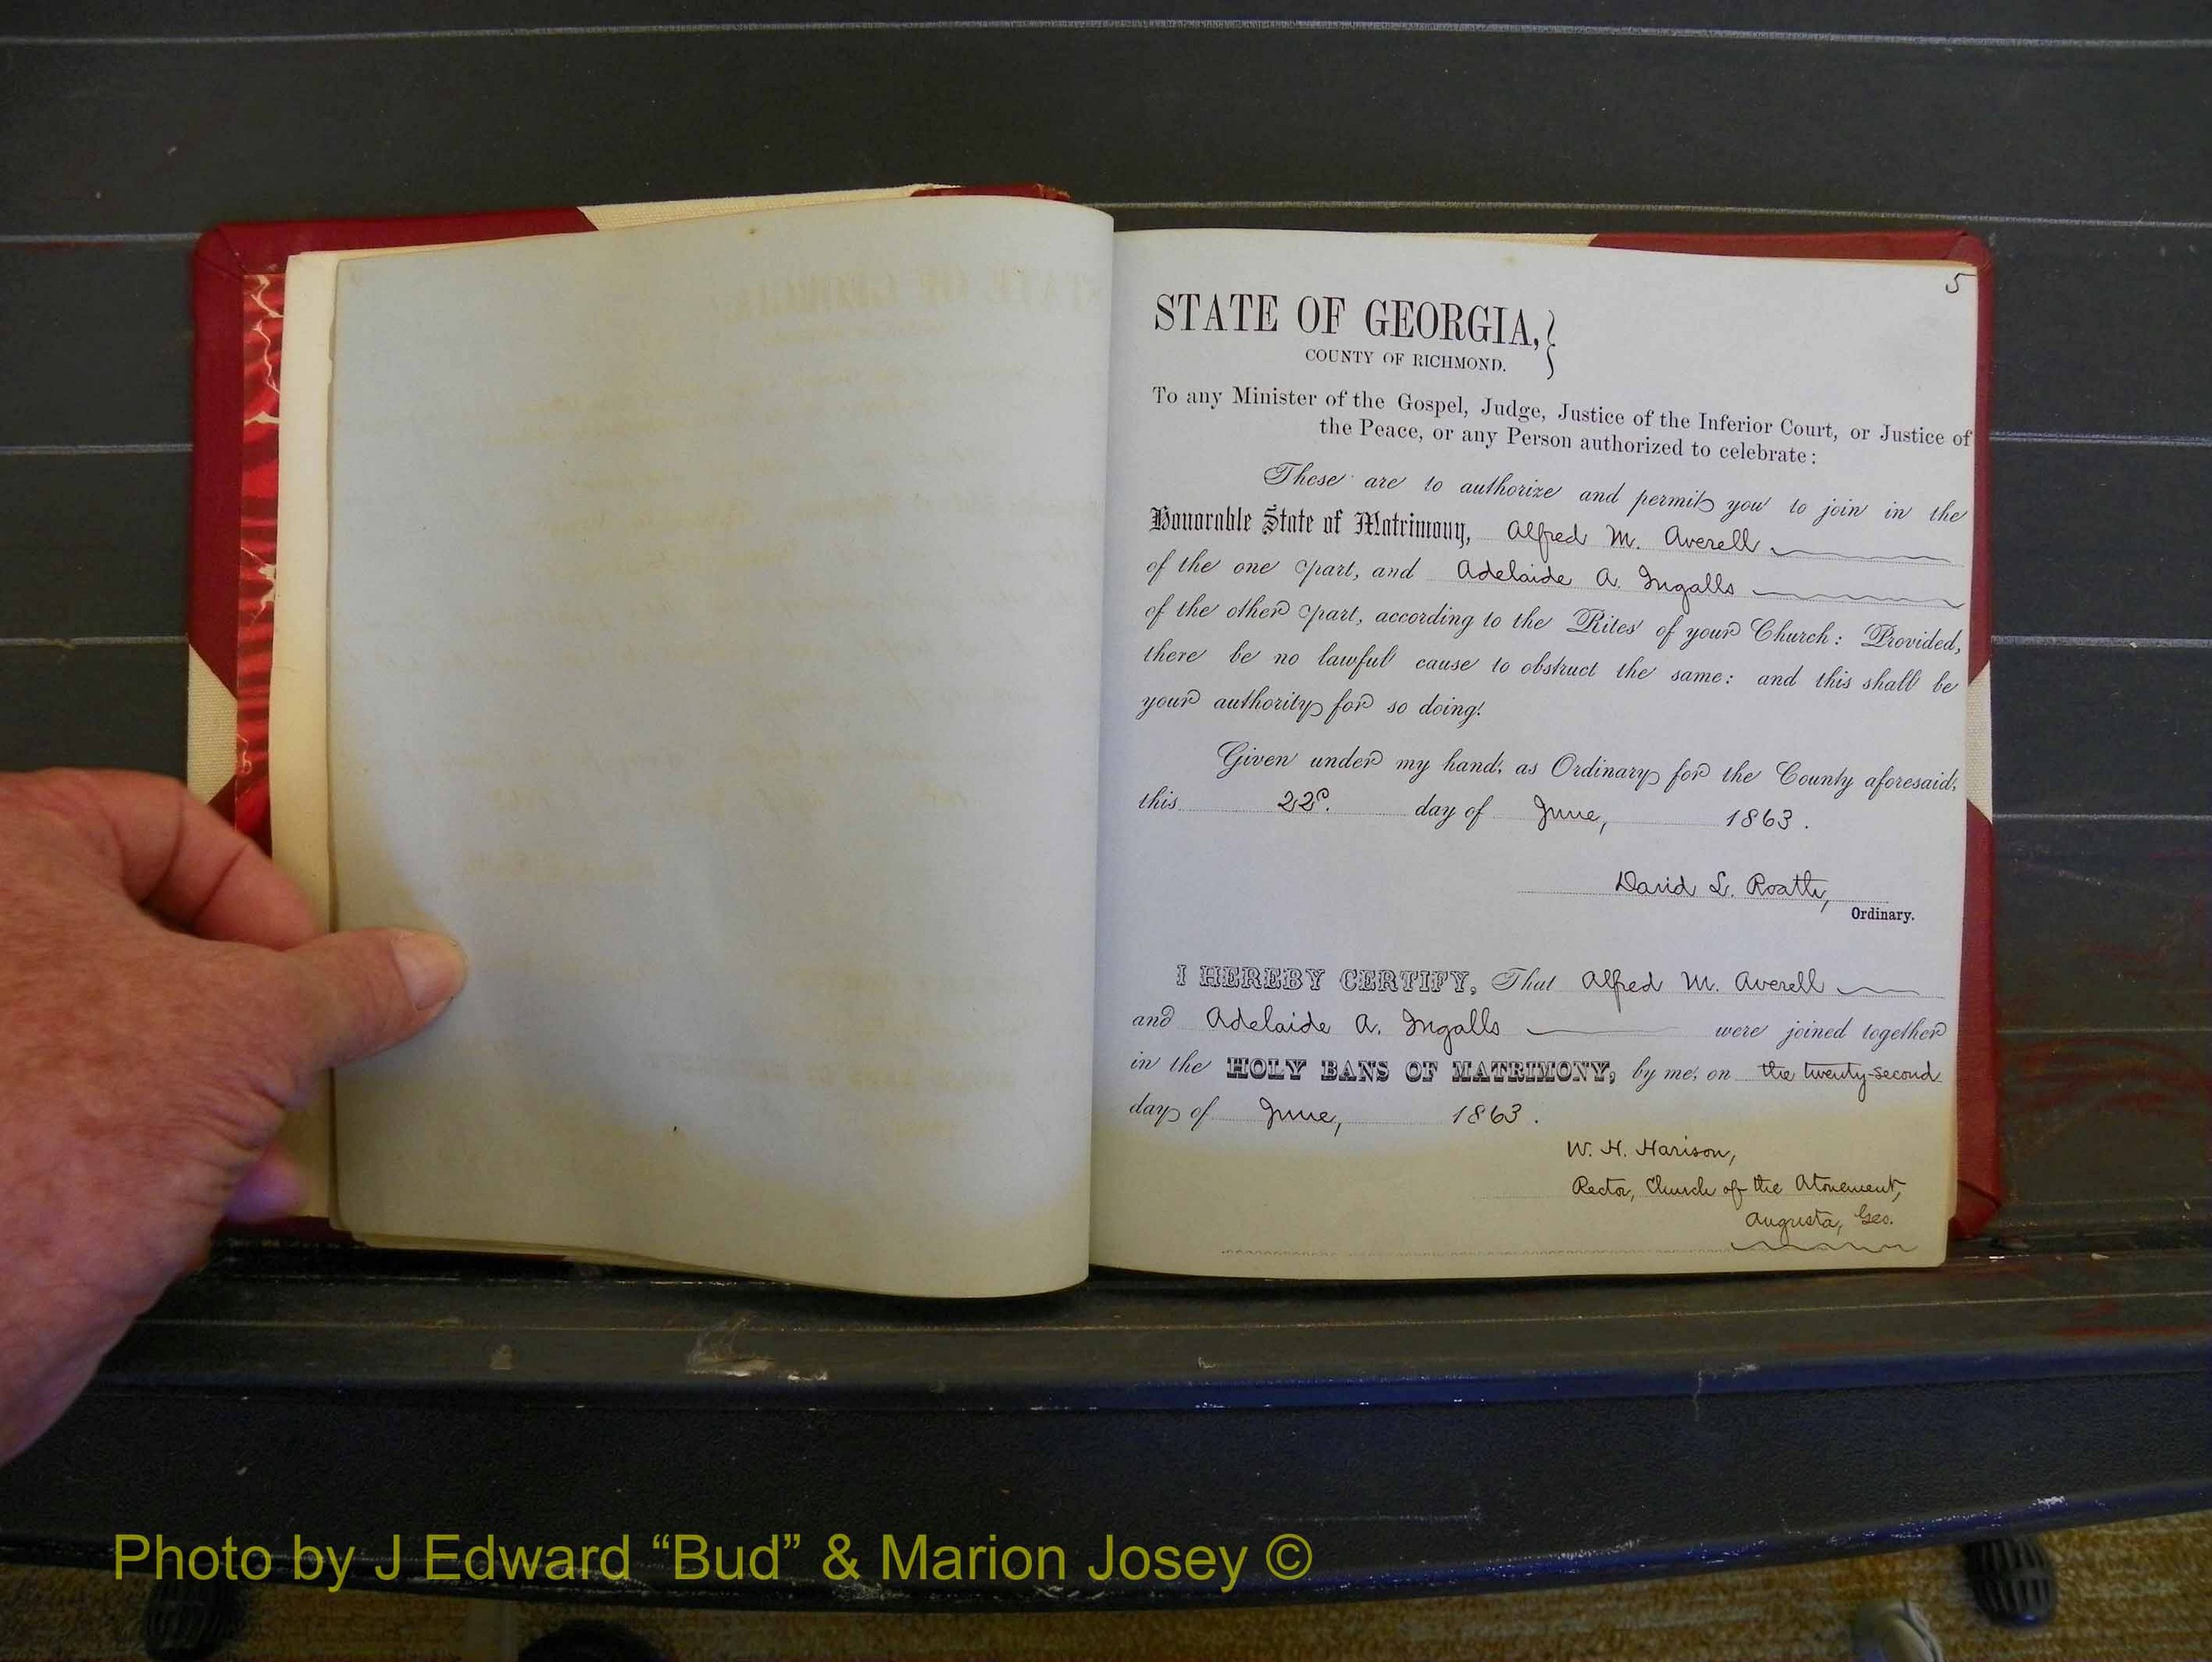 5
STATE OF GEORGIA,
COUNTY OF RICHMOND.
To any Minister of the Gospel, Judge, Justice of the Inferior Court, or Justice of
the Peace, or any Person authorized to celebrate:
These are to authorize and permit you to join in the
Honorable State of Matrimony, Alfred M. Averell
of the one part, and Adelaide A. Ingalls
of the other part, according to the Rites of your Church: Provided,
there be no lawful cause to obstruct the same: and this shall be
your authority for so doing!
Given under my hand, as Ordinary for the County aforesaid,
this 22d. day of June, 1863.
David L. Roath,
Ordinary.
I HEREBY CERTIFY, That Alfred M. Averell
and Adelaide A. Ingalls were joined together
in the HOLY BANS OF MATRIMONY, by me, on the twenty-second
day of June, 1863.
W. H. Harison,
Rector, Church of the Atonement,
Augusta, Geo.
Photo by J Edward “Bud” & Marion Josey ©